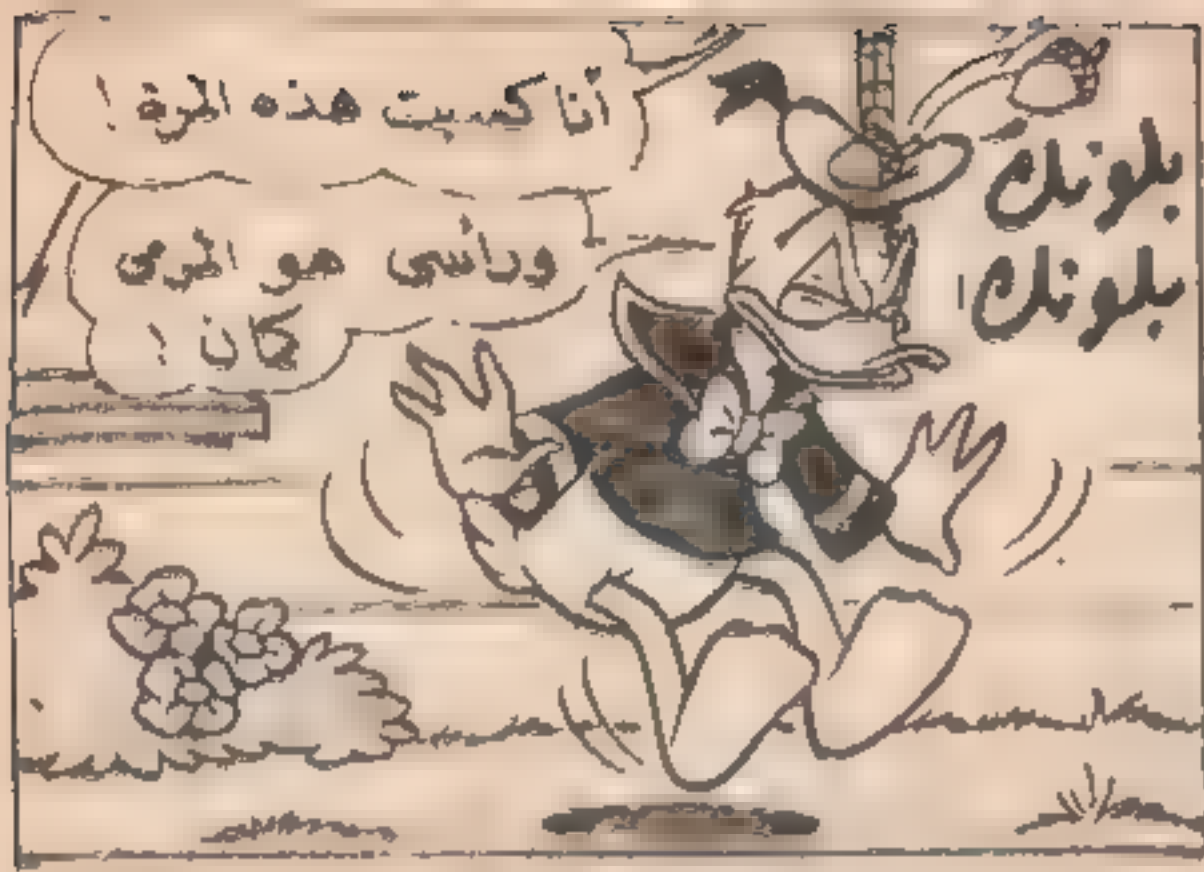 أنا كسبت هذه المرة !
ورأسي هو المرمى
كان !
بلونك
بلونك !